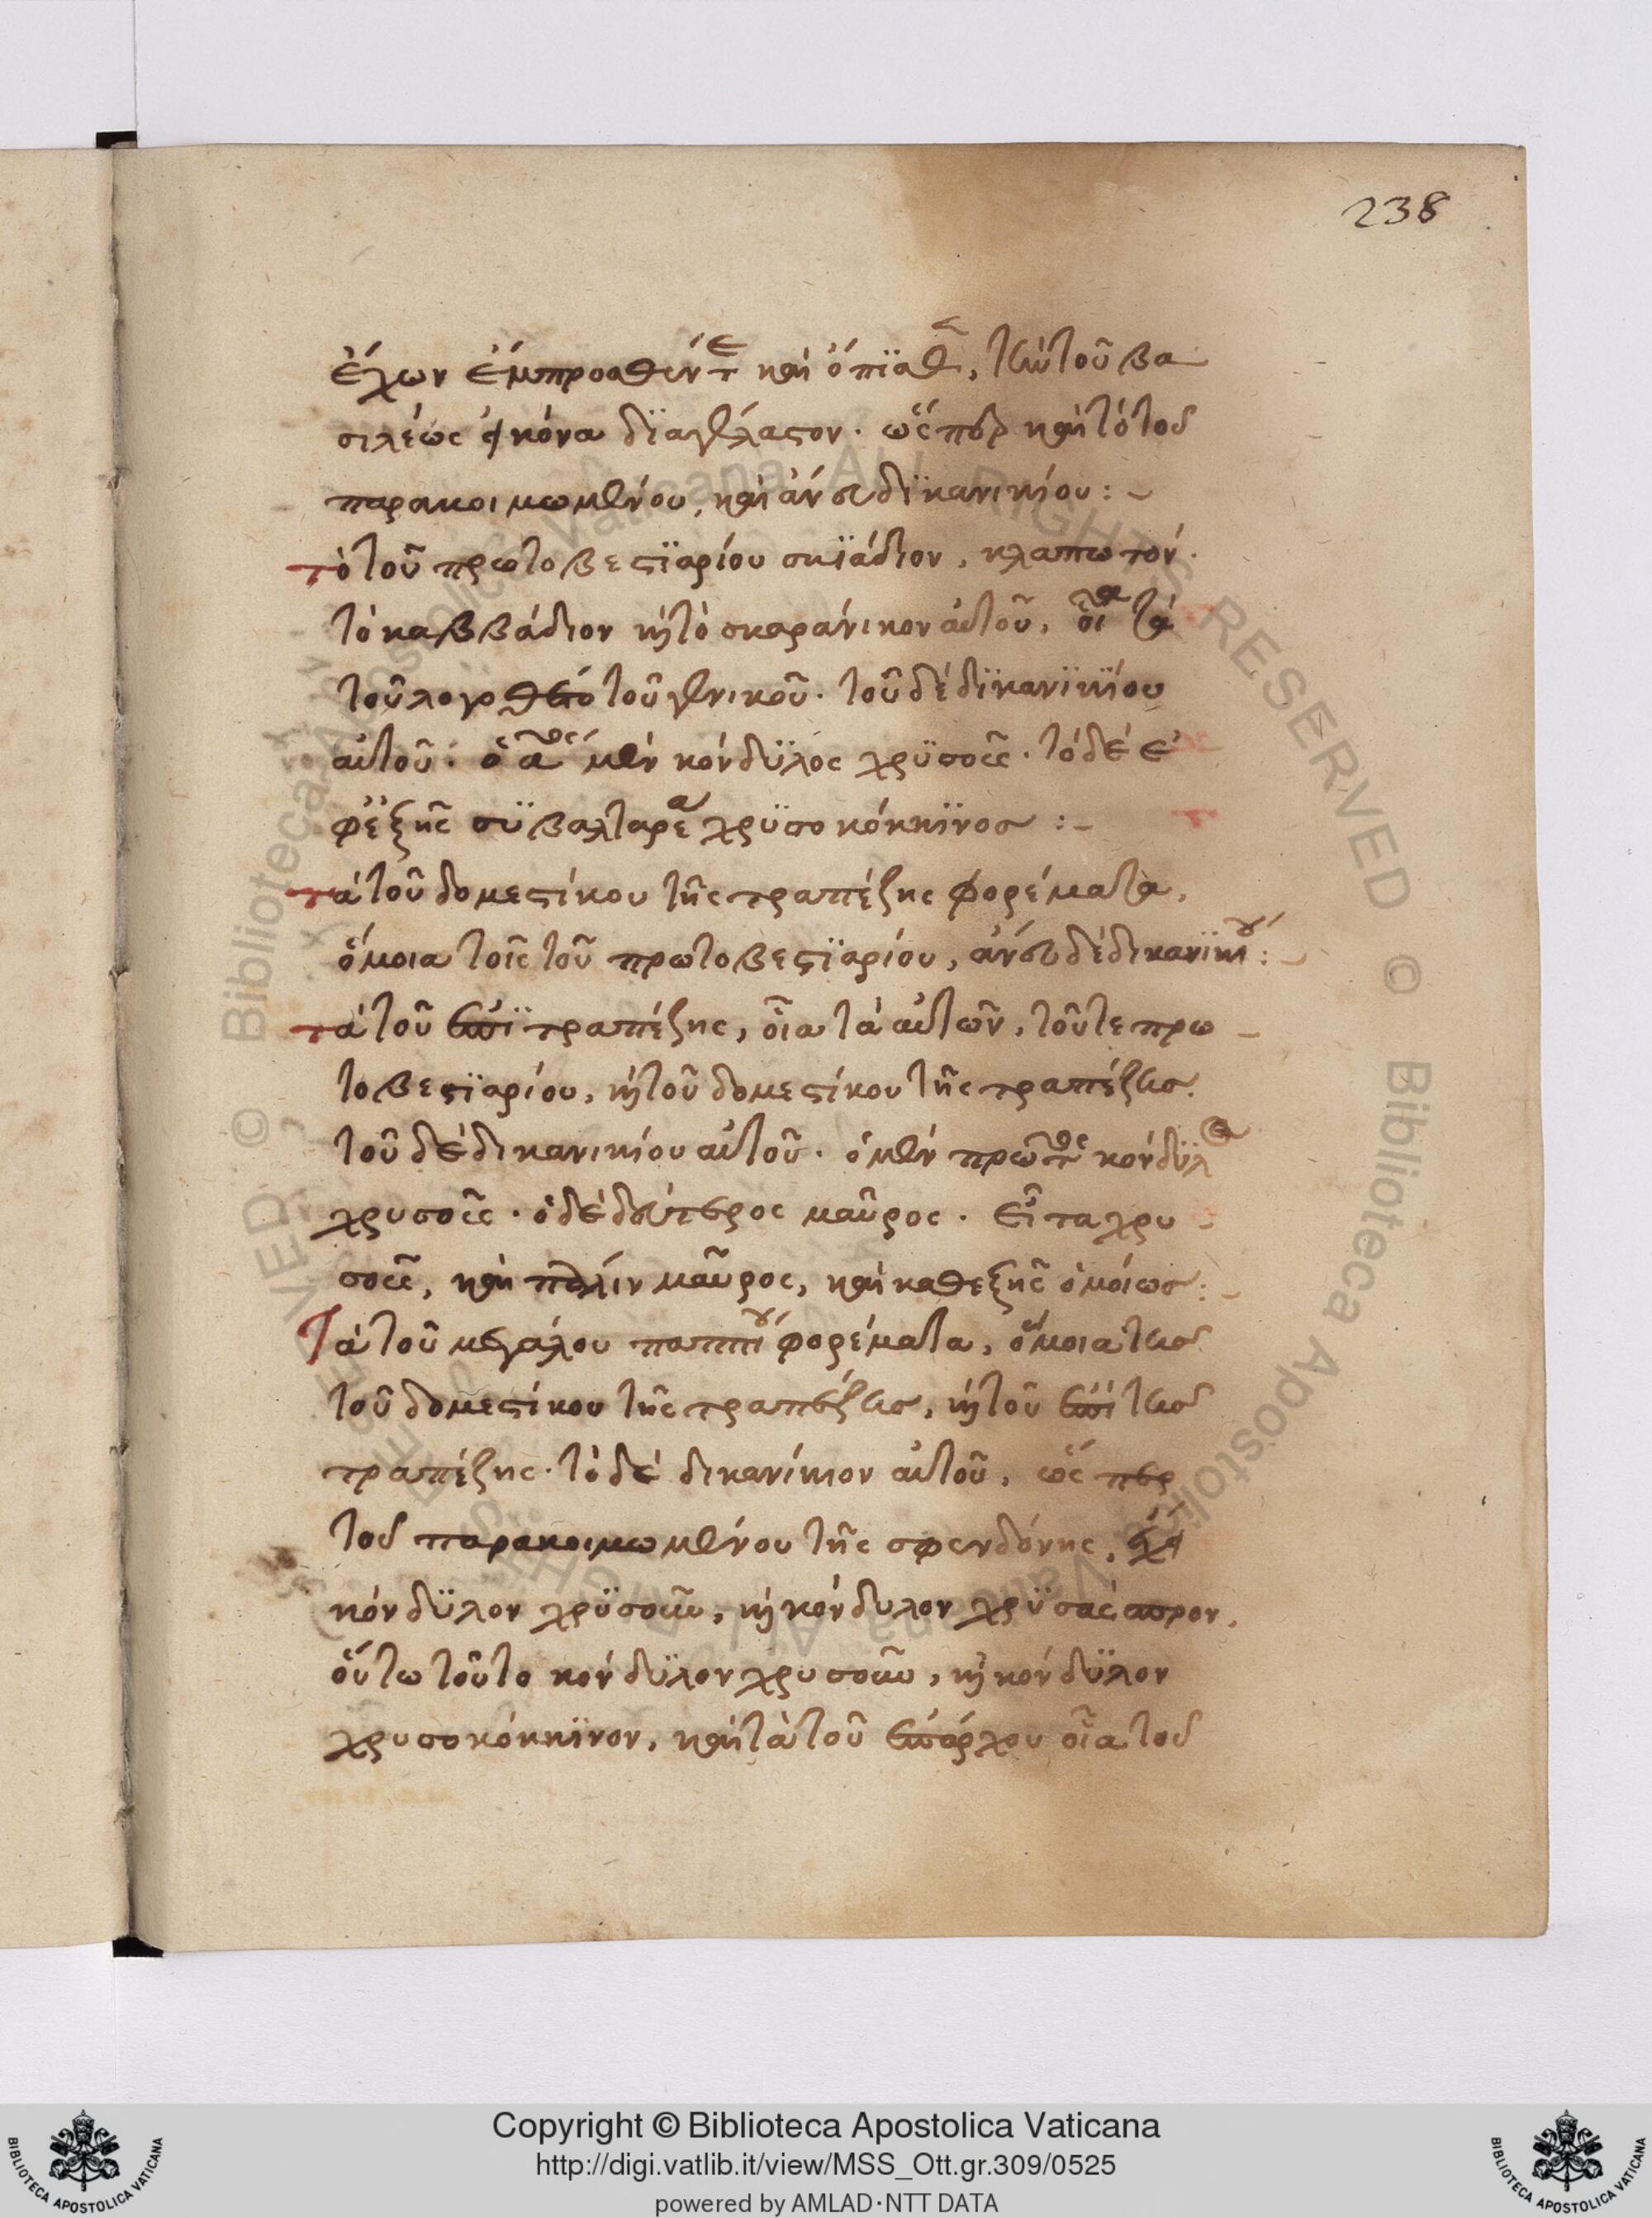 238
ἔχων ἔμπροσθέν τε καὶ ὄπισθεν, τὴν τοῦ βα
σιλέως εἰκόνα διαγέλαστον. ὥσπερ καὶ τὸ τοῦ
παρακοιμωμένου, καὶ ἄνευ δϊκανικίου :-
τὸ τοῦ πρωτοβεστϊαρίου σκϊάδιον, κλαπωτόν.
τὸ καββάδιον καὶ τὸ σκαράνικον αὐτοῦ, οἷα τὰ
τοῦ λογοθέτου τοῦ γενικοῦ. τοῦ δὲ δϊκανϊκίου
αὐτοῦ. ὁ αος μὲν κόνδϋλος χρϋσοῦς. τὸ δὲ ἐ
φεξῆς συβαλταρέα χρϋσοκόκκϊνος :-
τὰ τοῦ δομεστίκου τῆς τραπέζης φορέματα,
ὅμοια τοῖς τοῦ πρωτοβεστϊαρίου, ἄνευ δὲ δικανϊκίου :-
τὰ τοῦ ἐπὶ τραπέζης, οἷα τὰ αὐτῶν, τοῦ τε πρω
τοβεστϊαρίου, καὶ τοῦ δομεστίκου τῆς τραπέζης.
τοῦ δὲ δικανικίου αὐτοῦ. ὁ μὲν πρῶτος κόνδϋλος
χρυσοῦς. ὁ δὲ δεύτερος μαῦρος. εἶτα χρυ
σοῦς, καὶ πάλιν μαῦρος, καὶ καθεξῆς ὁμοίως :-
Τὰ τοῦ μεγάλου παππίου φορέματα, ὅμοια τῆς
τοῦ δομεστίκου τῆς τραπέζης, καὶ τοῦ ἐπὶ τῆς
τραπέζης. τὸ δὲ δικανίκιον αὐτοῦ, ὥσπερ
τοῦ παρακοιμωμένου τῆς σφενδόνης, ἔχει
κόνδϋλον χρϋσοῦν, καὶ κόνδυλον χρϋσάσπρον,
οὕτω τοῦτο κόνδϋλον χρυσοῦν, καὶ κόνδϋλον
χρυσοκόκκϊνον, καὶ τὰ τοῦ ἐπάρχου οἷα τοῦ
Copyright © Biblioteca Apostolica Vaticana
http://digi.vatlib.it/view/MSS_Ott.gr.309/0525
powered by AMLAD·NTT DATA
BIBLIOTECA APOSTOLICA VATICANA
BIBLIOTECA APOSTOLICA VATICANA